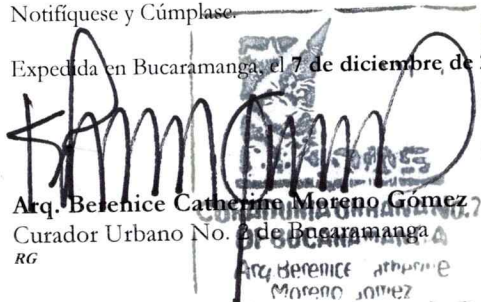 Notifíquese y Cúmplase.
Expedida en Bucaramanga, el 7 de diciembre de
Arq. Berenice Catherine Moreno Gómez
Curador Urbano No. 2 de Bucaramanga
RG
CURADURIA URBANA No.2
DE BUCARAMANGA
Arq. Berenice Catherine
Moreno Gomez